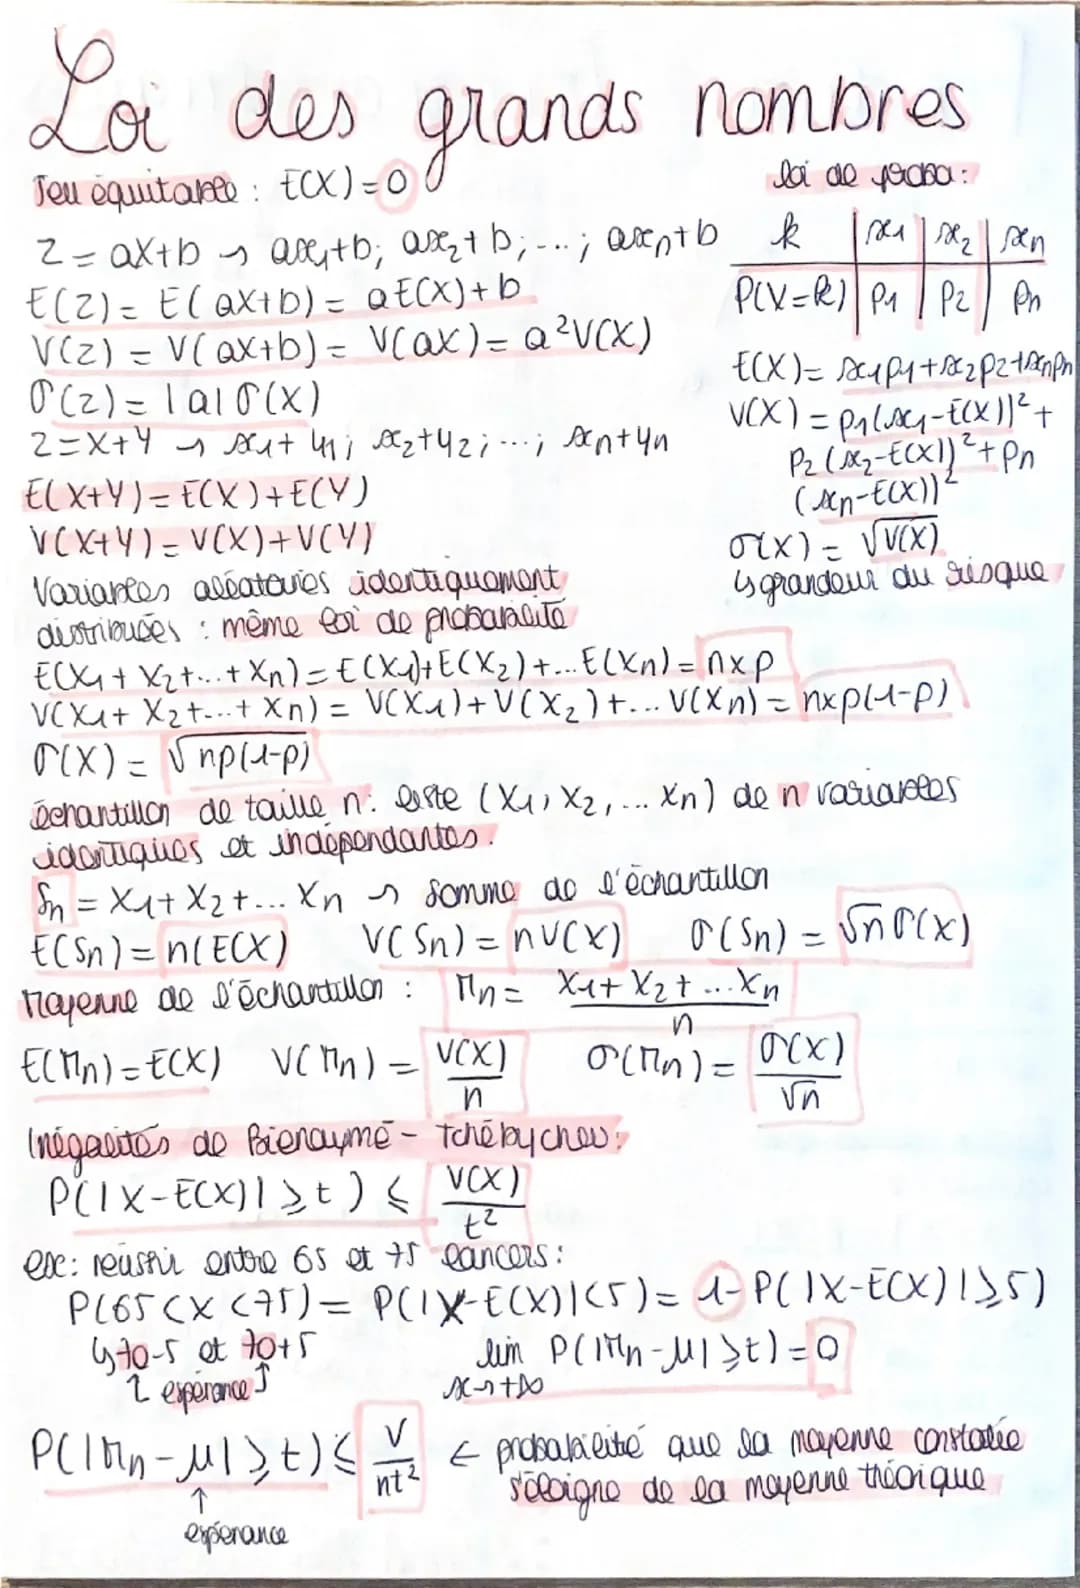 Loi des grands nombres
Jeu équitable : E(X) = 0
loi de proba :
Z = aX+b ↝ ax₁+b; ax₂+b; ...; axn+b
k | x₁ | x₂ | xn
P(V=k) | P₁ | P₂ | Pn
E(Z) = E(aX+b) = aE(X)+b
V(Z) = V(aX+b) = V(aX) = a²V(X)
σ(Z) = |a|σ(X)
E(X) = x₁p₁+x₂p₂+xnpn
V(X) = p₁(x₁-E(X))²+
p₂(x₂-E(X))²+pn
(xn-E(X))²
σ(X) = √V(X)
↳ grandeur du risque
Z=X+Y ↝ x₁+y₁; x₂+y₂; ...; xn+yn
E(X+Y) = E(X)+E(Y)
V(X+Y) = V(X)+V(Y)
Variables aléatoires identiquement
distribuées : même loi de probabilité
E(X₁+X₂+...+Xn) = E(X₁)+E(X₂)+...E(Xn) = n×p
V(X₁+X₂+...+Xn) = V(X₁)+V(X₂)+...V(Xn) = n×p(1-p)
σ(X) = √np(1-p)
échantillon de taille n : liste (X₁, X₂, ... Xn) de n variables
identiques et indépendantes.
Sn = X₁+X₂+... Xn ↝ somme de l'échantillon
E(Sn) = n(E(X) V(Sn) = nV(X) σ(Sn) = √nσ(X)
Moyenne de l'échantillon : Mn = X₁+X₂+...Xn / n
E(Mn) = E(X) V(Mn) = V(X)/n σ(Mn) = σ(X)/√n
Inégalités de Bienaymé-Tchébychev :
P(|X-E(X)| ⩾ t) ⩽ V(X)/t²
ex: réussir entre 65 et 75 lancers :
P(65<X<75) = P(|X-E(X)|<5) = 1-P(|X-E(X)|⩾5)
↳ 70-5 et 70+5
↑ espérance ↑
lim P(|Mn-μ|⩾t) = 0
x→+∞
P(|Mn-μ|⩾t) ⩽ V/nt² ← probabilité que la moyenne constatée
s'éloigne de la moyenne théorique
↑
espérance